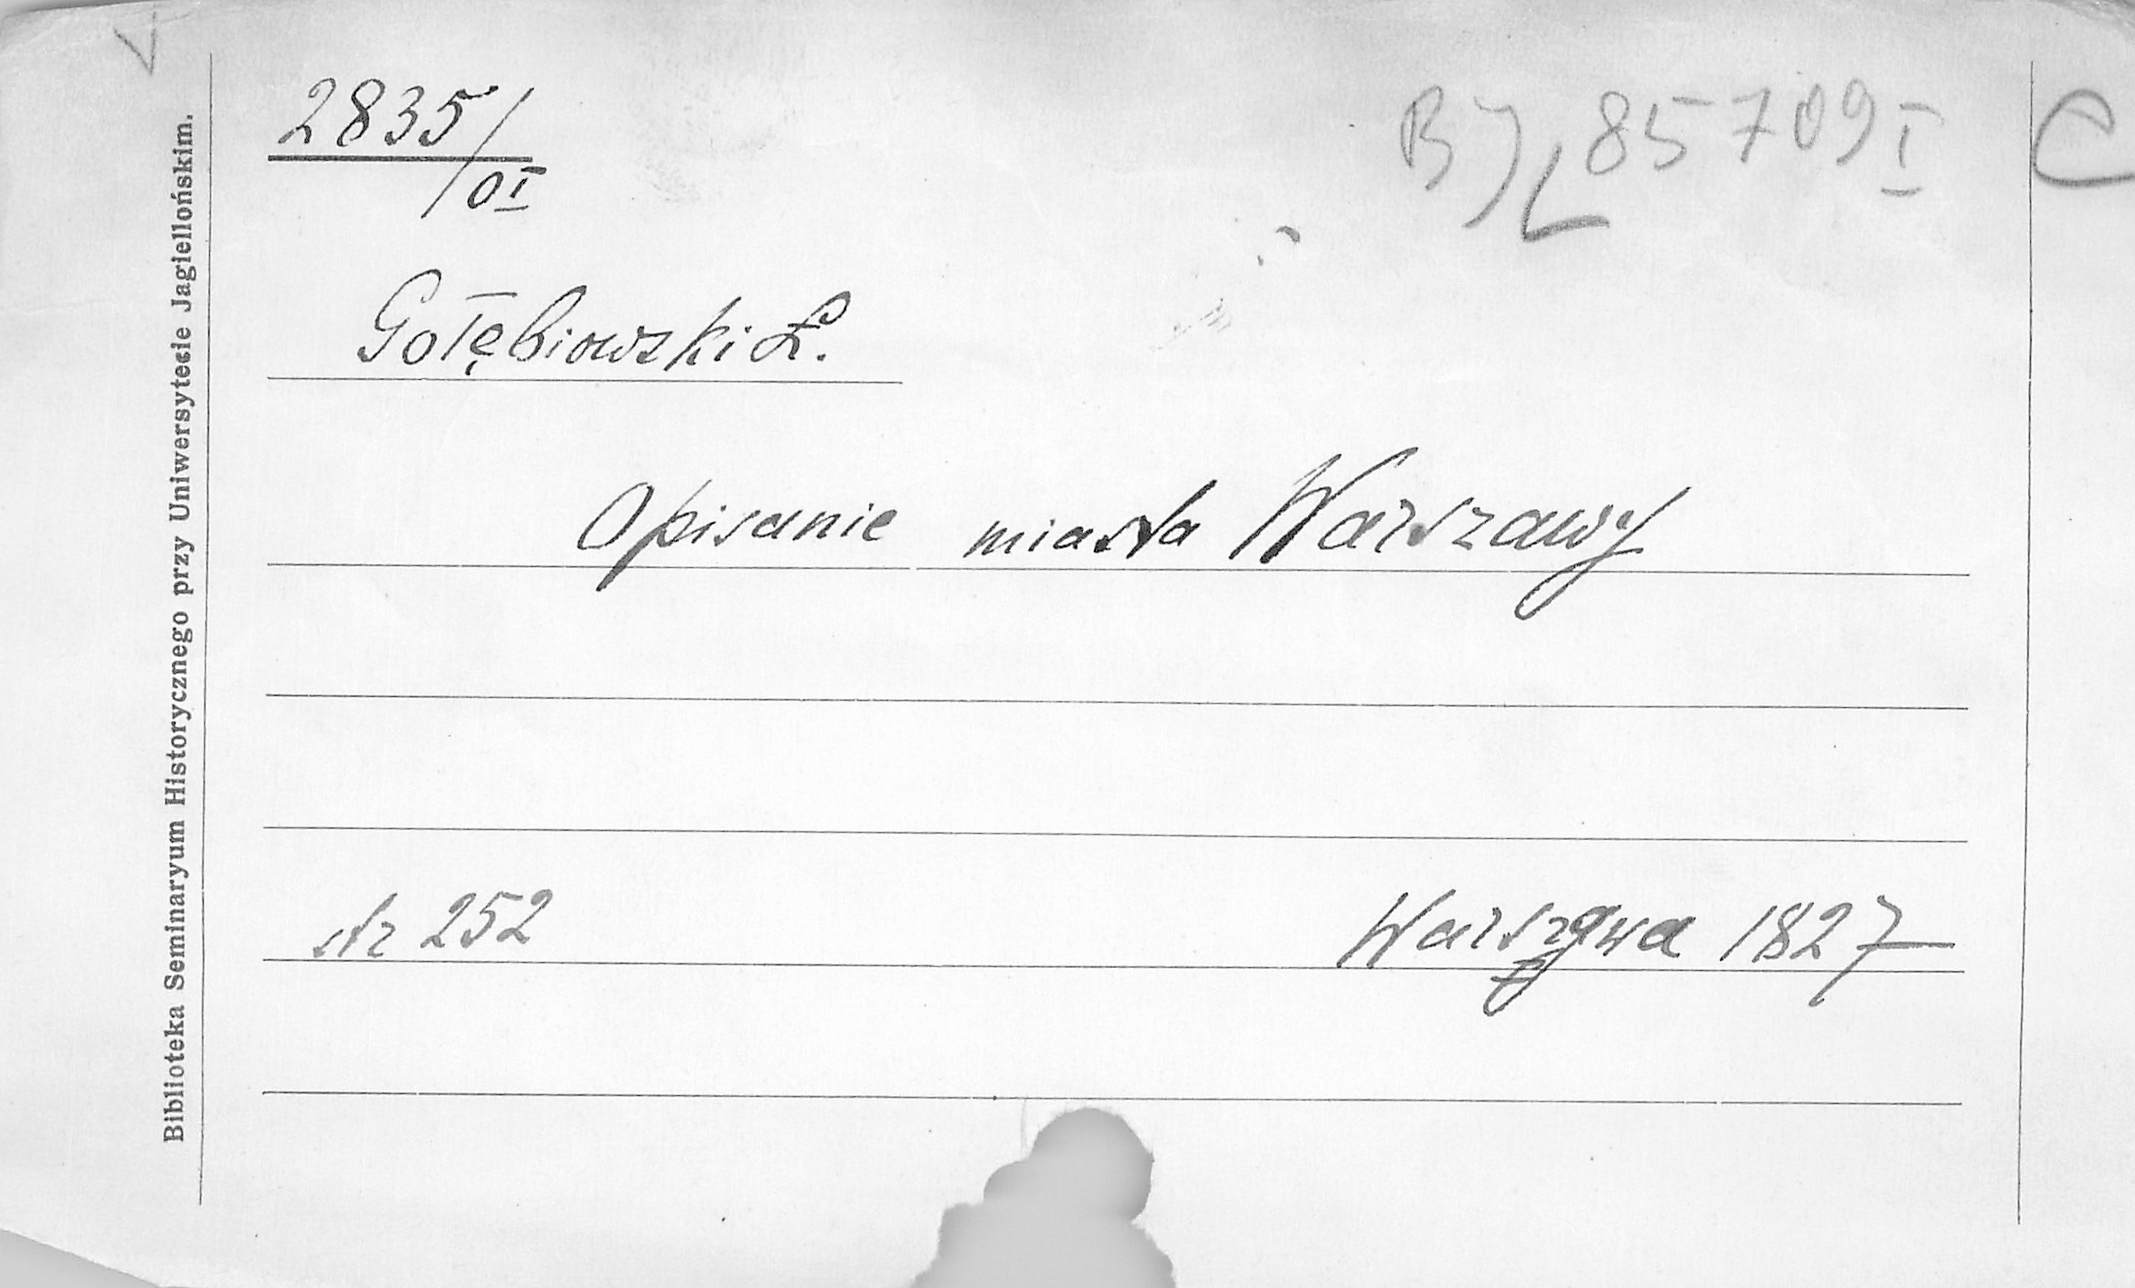 2835/OI
BJ 85709 I
C
Gołębiowski Ł.
Opisanie miasta Warszawy
str 252
Warszawa 1827
Biblioteka Seminaryum Historycznego przy Uniwersytecie Jagiellońskim.